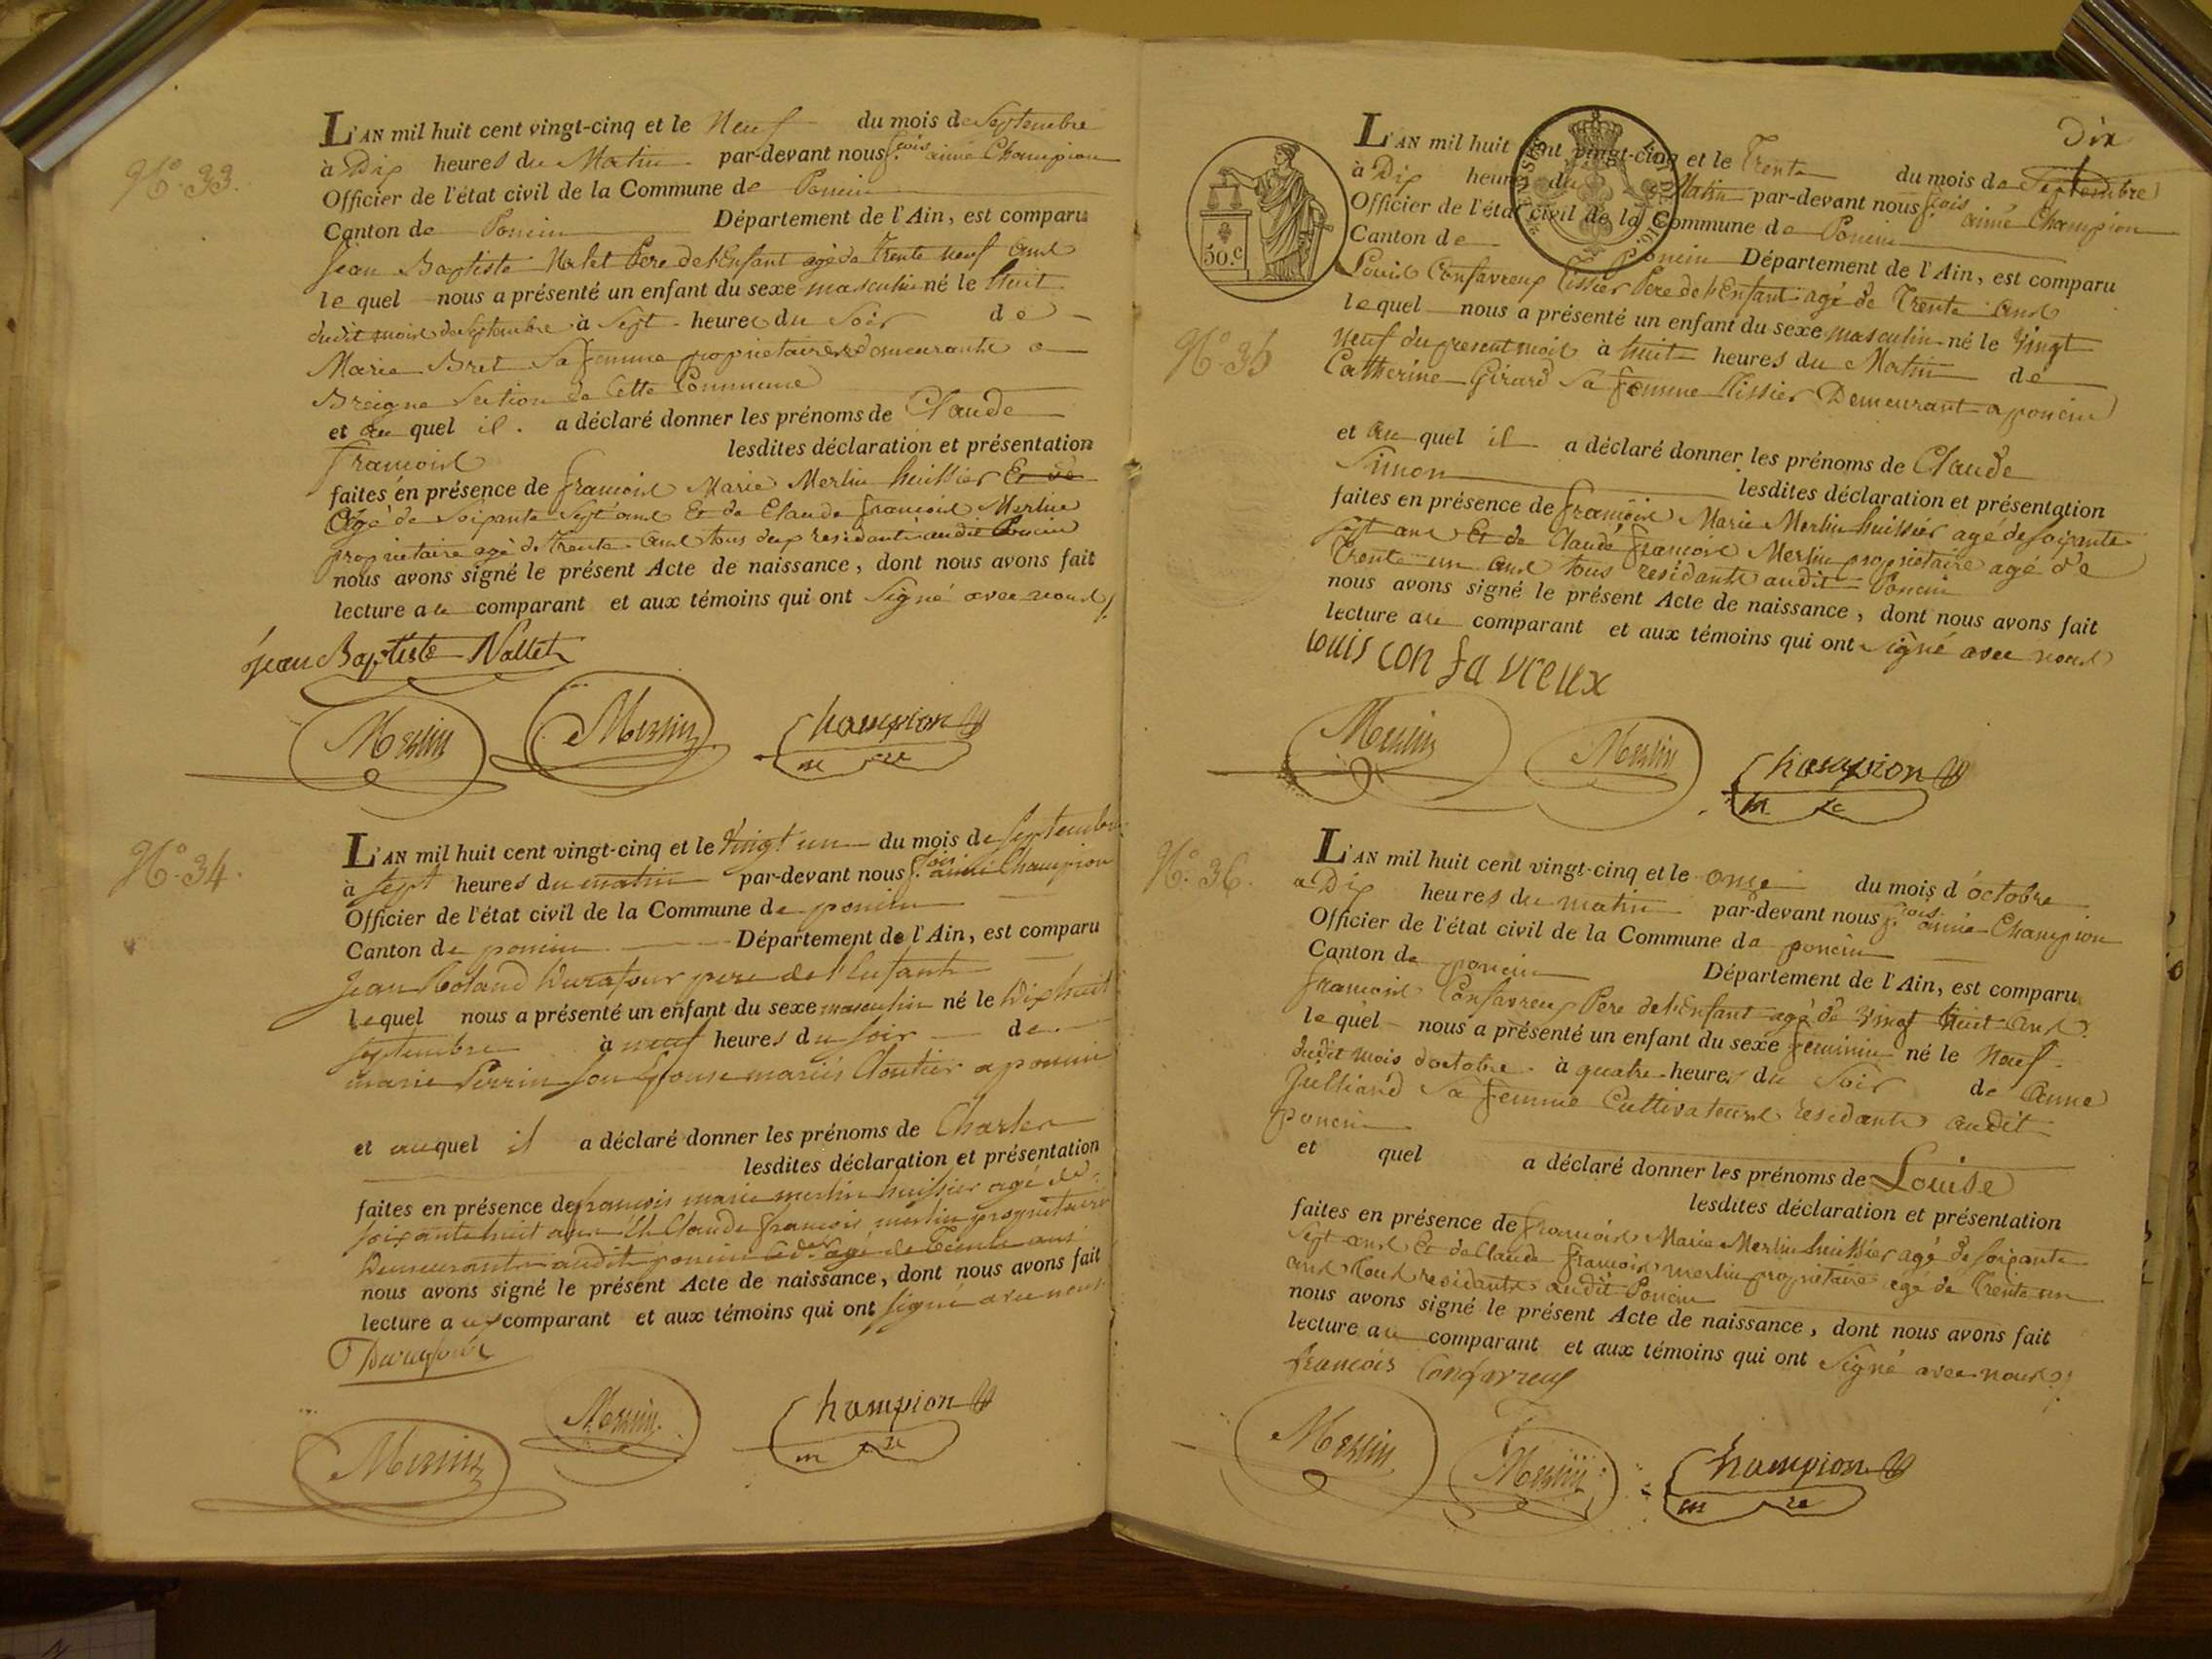 N.º 33.
L'AN mil huit cent vingt-cinq et le Neuf du mois de Septembre
à Dix heures du Matin par-devant nous f.cois aimé Champion
Officier de l'état civil de la Commune de Poncin
Canton de Poncin Département de l'Ain, est comparu
Jean Baptiste Nalet Pere de l'Enfant agé de trente neuf ans
lequel nous a présenté un enfant du sexe masculin né le huit
dudit mois de Septembre à Sept heures du Soir de
Marie Bret Sa femme proprietaires demeurants a
Breigne Section de Cette Commune
et au quel il a déclaré donner les prénoms de Claude
francois lesdites déclaration et présentation
faites en présence de francois Marie Merlin huissier Et de
Agé de Soixante Sept ans Et de Claude francois Merlin
proprietaire agé de trente ans tous deux residants audit Poncin
nous avons signé le présent Acte de naissance, dont nous avons fait
lecture au comparant et aux témoins qui ont Signé avec nous
jean Baptiste Nallet
Merlin Merlin Champion
m re
N.º 34.
L'AN mil huit cent vingt-cinq et le Vingt un du mois de Septembre
à Sept heures du matin par-devant nous f.cois aimé Champion
Officier de l'état civil de la Commune de poncin
Canton de poncin Département de l'Ain, est comparu
Jean Roland Durafour pere de l'Enfant
lequel nous a présenté un enfant du sexe masculin né le Dix huit
Septembre à neuf heures du Soir de
marie Perrin Son Epouse mariés Cloutier a poncin
et auquel il a déclaré donner les prénoms de Charles
lesdites déclaration et présentation
faites en présence de francois marie merlin huissier agé de
soixante huit ans Et Claude francois merlin proprietaire
Demeurants audit poncin agé de trente ans
nous avons signé le présent Acte de naissance, dont nous avons fait
lecture aux comparant et aux témoins qui ont signé avec nous
Durafour
Merlin Merlin Champion
m re
Dix
L'AN mil huit cent vingt-cinq et le Trente du mois de Septembre
à Dix heures du Matin par-devant nous f.cois aimé Champion
Officier de l'état civil de la Commune de Poncin
Canton de Poncin Département de l'Ain, est comparu
50.c
Louis Confavreux Tissier Pere de l'Enfant agé de Trente ans
lequel nous a présenté un enfant du sexe masculin né le Vingt
N.º 35
Neuf du present mois à huit heures du Matin de
Catherine Girard Sa femme Tissier Demeurant a poncin
et au quel il a déclaré donner les prénoms de Claude
Simon lesdites déclaration et présentation
faites en présence de francois Marie Merlin huissier agé de soixante
Sept ans Et de Claude francois Merlin proprietaire agé de
Trente un ans tous residants audit Poncin
nous avons signé le présent Acte de naissance, dont nous avons fait
lecture au comparant et aux témoins qui ont Signé avec nous
Louis confavreux
Merlin Merlin Champion
m re
N.º 36.
L'AN mil huit cent vingt-cinq et le onze du mois d'octobre
a Dix heures du matin par-devant nous f.cois aimé Champion
Officier de l'état civil de la Commune de poncin
Canton de poncin Département de l'Ain, est comparu
francois Confavreux Pere de l'Enfant agé de Vingt huit ans
lequel nous a présenté un enfant du sexe feminin né le Neuf
dudit mois doctobre à quatre heures du Soir de Anne
Julliard Sa femme Cultivateurs residants audit
poncin
et quel a déclaré donner les prénoms de Louise
lesdites déclaration et présentation
faites en présence de francois Marie Merlin huissier agé de soixante
Sept ans Et de Claude francois merlin proprietaire agé de Trente un
ans tous residants audit Poncin
nous avons signé le présent Acte de naissance, dont nous avons fait
lecture au comparant et aux témoins qui ont Signé avec nous
francois Confavreux
Merlin Merlin Champion
m re